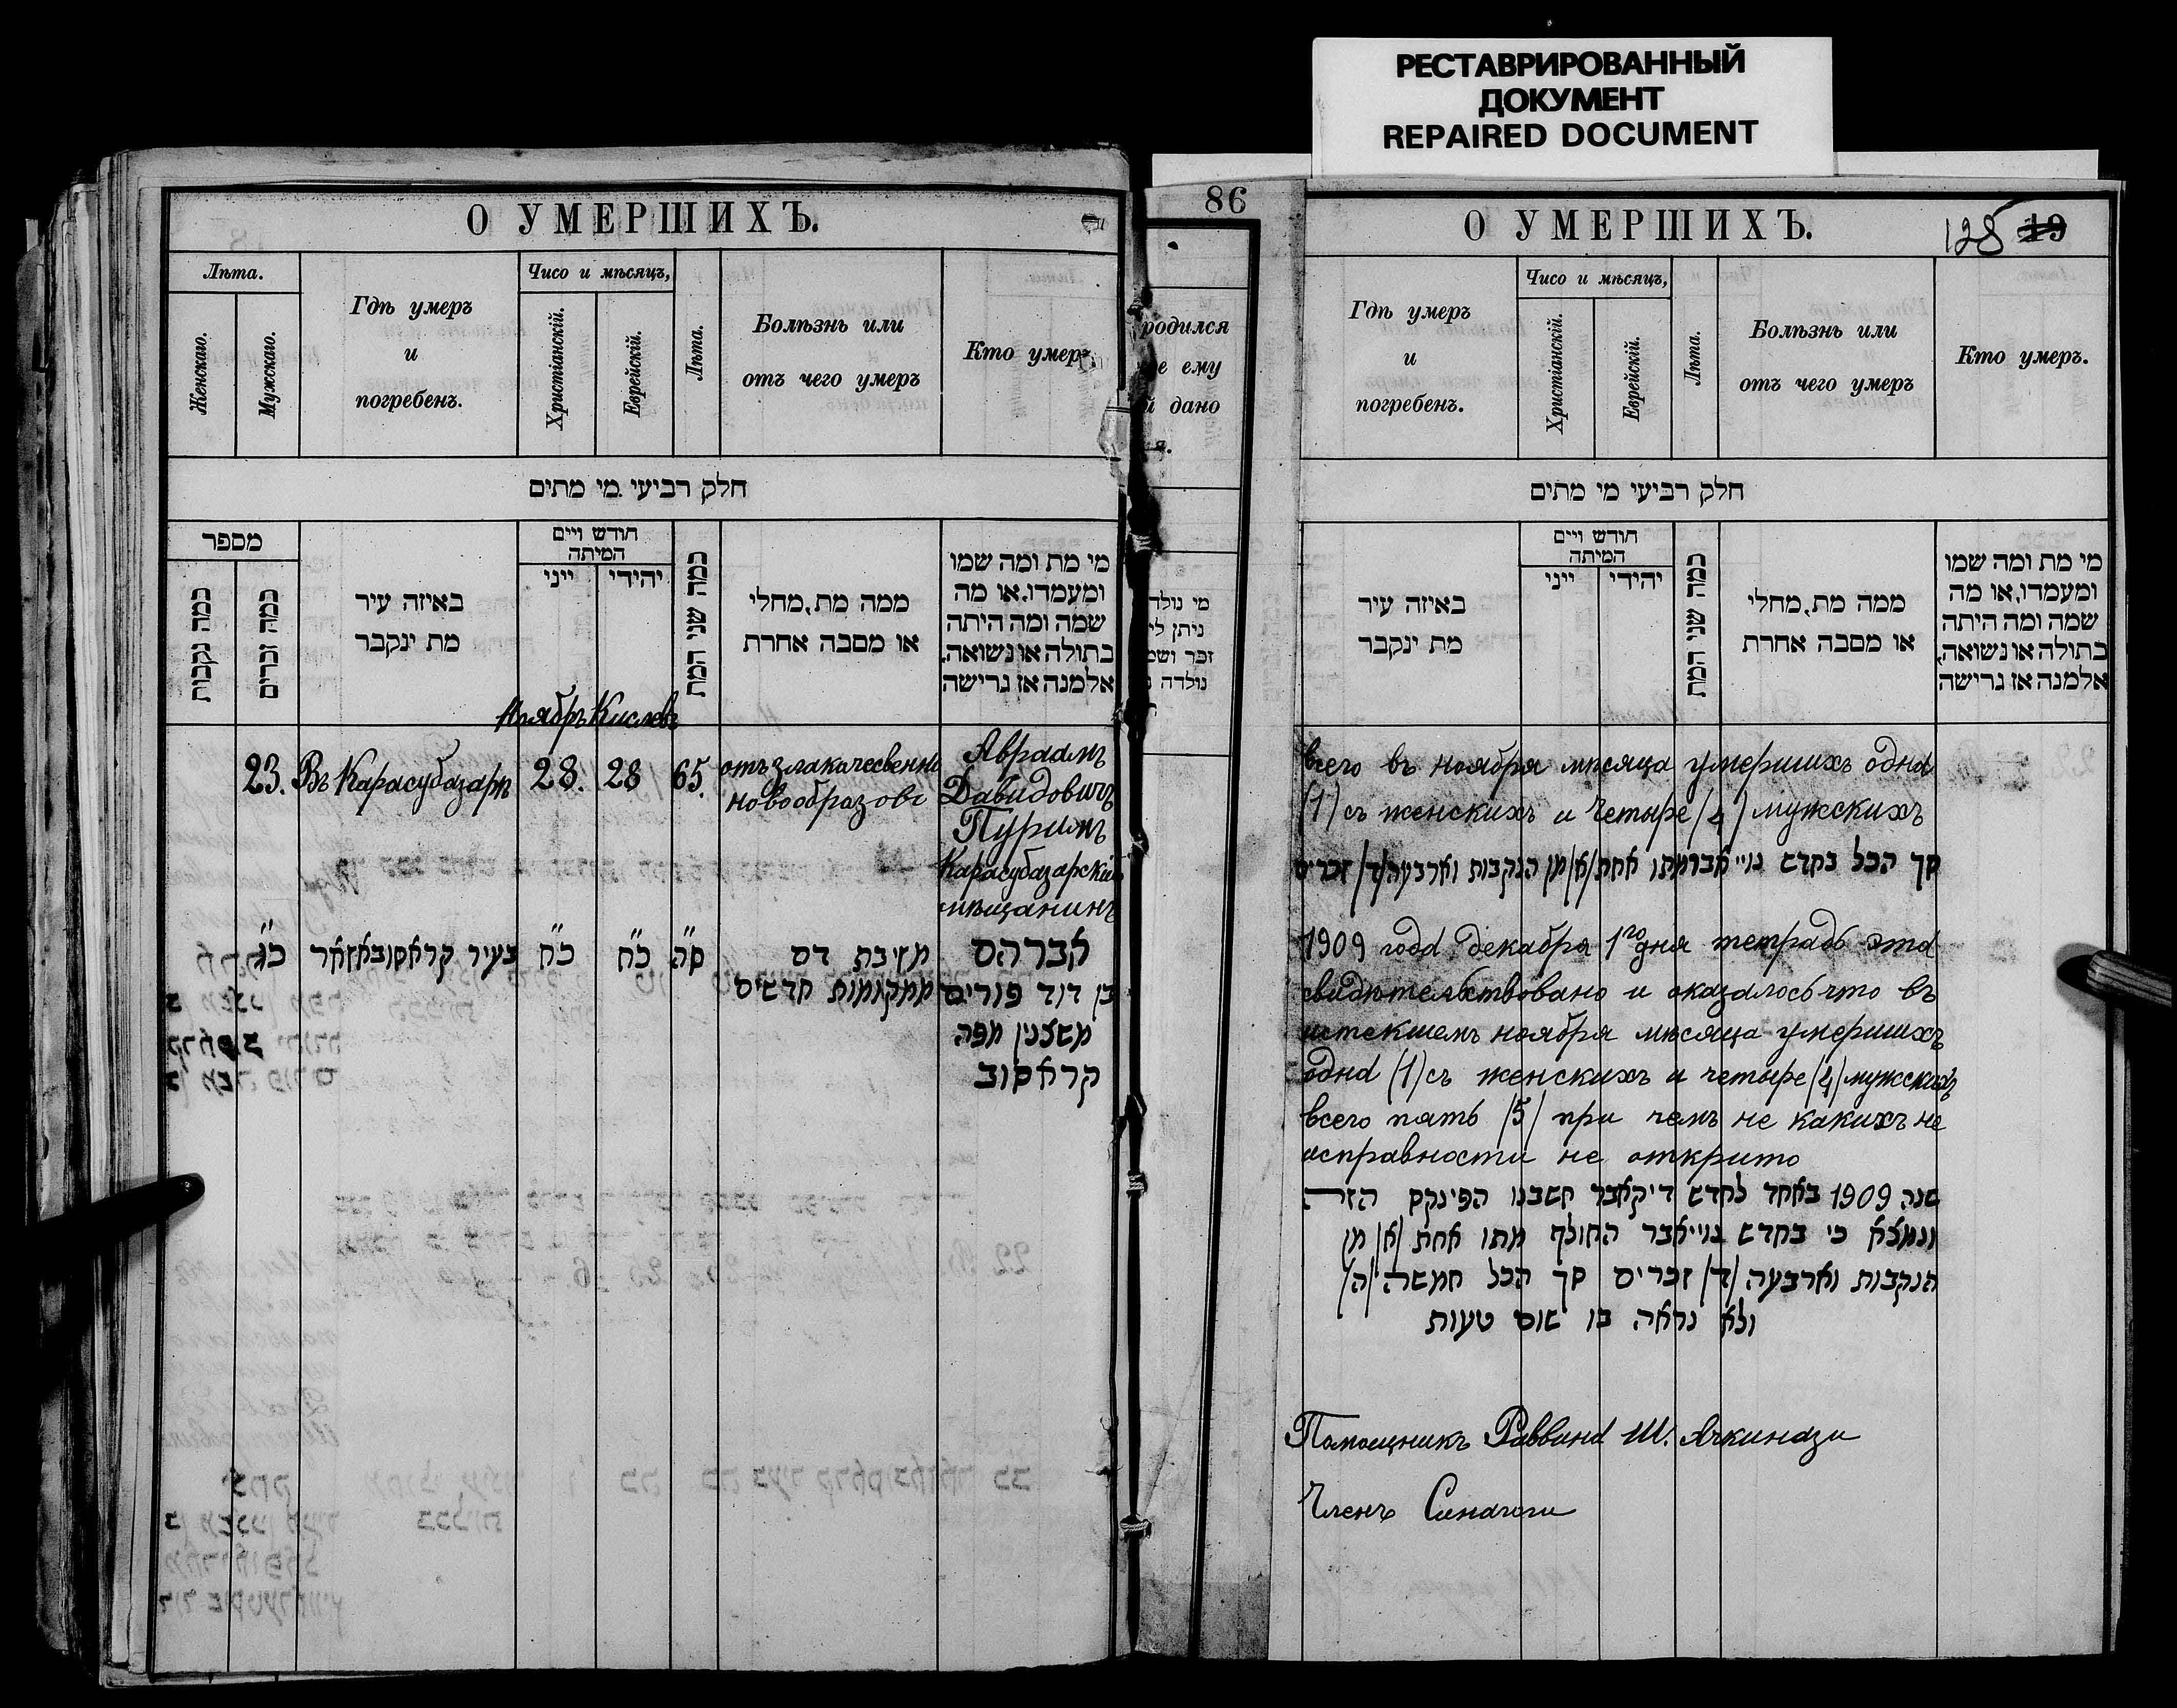 РЕСТАВРИРОВАННЫЙ
ДОКУМЕНТ
REPAIRED DOCUMENT
О УМЕРШИХЪ.
Лѣта.
Женскаго.
Мужскаго.
Гдѣ умеръ
и
погребенъ.
Чисо и мѣсяцъ,
Христіанскій.
Еврейскій.
Лѣта.
Болѣзнь или
отъ чего умеръ
Кто умеръ.
חלק רביעי מי מתים
מספר
כמה נקבות
כמה זכרים
באיזה עיר
מת ינקבר
חודש ויים
המיתה
ייני
יהידי
כמה שני המת
ממה מת, מחלי
או מסבה אחרת
מי מת ומה שמו
ומעמדו, או מה
שמה ומה היתה
בתולה או נשואה,
אלמנה אז גרישה
Ноябръ Кислевъ
23. Въ Карасубазарѣ 28. 28 65. отъ злокачесвенно
новообразова
Авраамъ
Давидовичъ
Пуримъ
Карасубазарскій
мѣщанинъ
כ"ג בעיר קראסובאזאר כ"ח כ"ח ס"ה מזיבת דם
ממקומות חדשים
אברהם
בן דוד פורים
משצנין מפה
קראסוב
86
родился
е ему
й дано
я.
מי נולד
ניתן לי
זכר ושמ
נולדה נ
О УМЕРШИХЪ.
128 19
Гдѣ умеръ
и
погребенъ.
Чисо и мѣсяцъ,
Христіанскій.
Еврейскій.
Лѣта.
Болѣзнь или
отъ чего умеръ
Кто умеръ.
חלק רביעי מי מתים
באיזה עיר
מת ינקבר
חודש ויים
המיתה
ייני
יהידי
כמה שני המת
ממה מת, מחלי
או מסבה אחרת
מי מת ומה שמו
ומעמדו, או מה
שמה ומה היתה
בתולה או נשואה,
אלמנה אז גרישה
всего въ ноября мѣсяца умершихъ одна
(1) съ женскихъ и четыре (4) мужскихъ
סך הכל בחדש נוייאבר מתו אחת /א/ מן הנקבות וארבעה /ד/ זכרים
1909 года декабря 1го дня тетрадь эта
свидѣтельствовано и оказалось что въ
истекшемъ ноября мѣсяца умершихъ
одна (1) съ женскихъ и четыре (4) мужскихъ
всего пять /5/ при чемъ не какихъ не
исправности не открито
שנה 1909 באחד לחדש דיקאבר חשבנו הפינקס הזה
ונמצא כי בחדש נוייאבר החולף מתו אחת /א/ מן
הנקבות וארבעה /ד/ זכרים סך הכל חמשה /ה/
ולא נראה בו שום טעות
Помощникъ Раввина Ш. Ачкинази
Членъ Синагоги